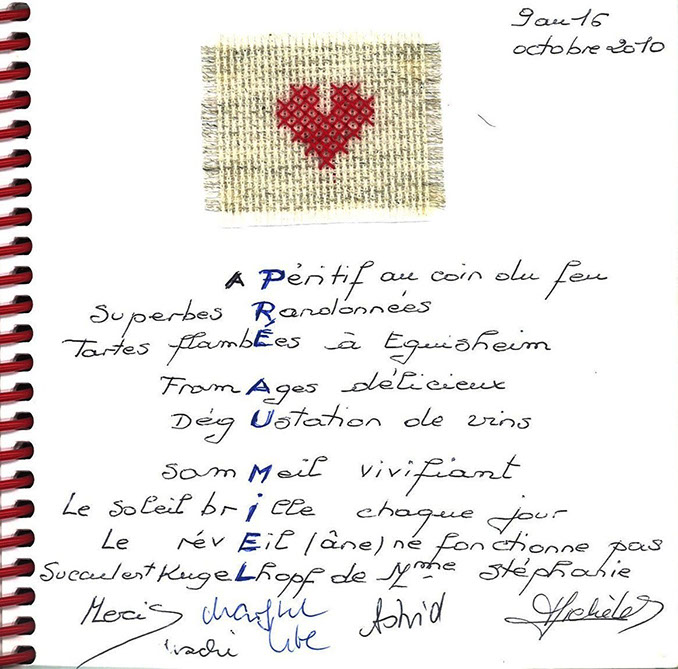 9 au 16
octobre 2010
APéritif au coin du feu
Superbes Randonnées
Tartes flambÉes à Eguisheim
FromAges délicieux
DégUstation de vins
somMeil vivifiant
Le soleil brille chaque jour
Le révEil (âne) ne fonctionne pas
Succulent KugeLhopf de Mme Stéphanie
Merci
Astrid